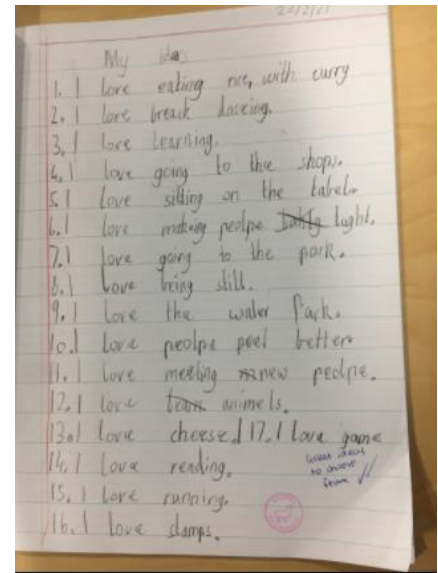 22/2/21
My ideas
1. I love eating rice, with curry
2. I love breack daceing.
3. I love learning.
4. I love going to the shops.
5. I love sitting on the tabel.
6. I love making peolpe light.
7. I love going to the park.
8. I love being still.
9. I love the water Park.
10. I love peolpe peel better
11. I love meeting new pedlpe.
12. I love animels.
13. I love cheese! 17. I love game
14. I love reading.
15. I love running.
16. I love stamps.
Great ideas
to choose
from